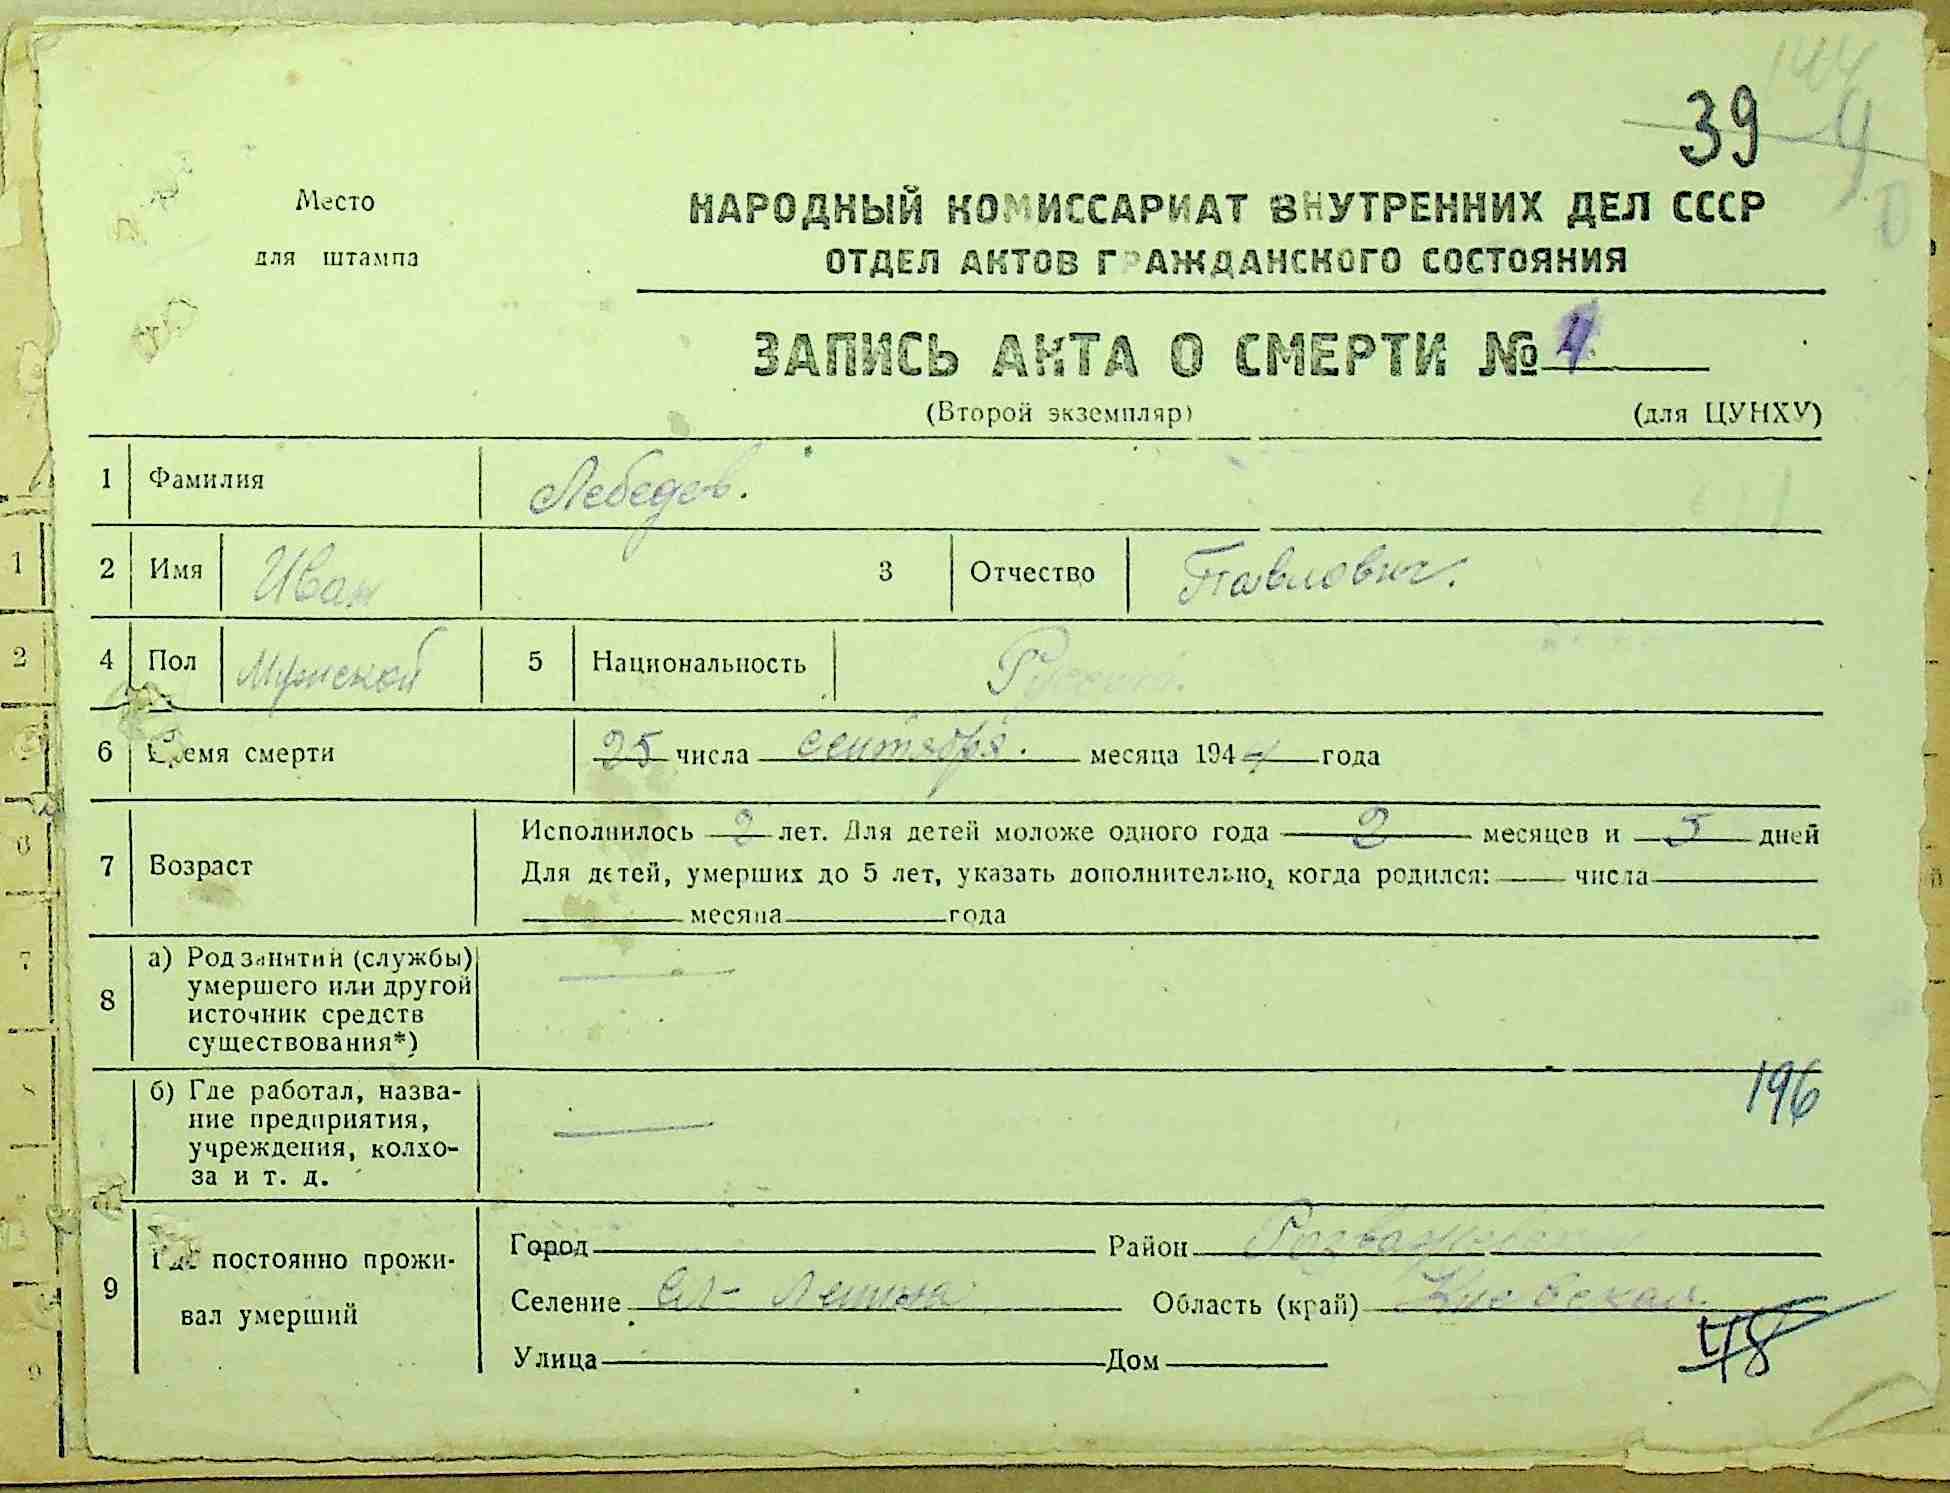 144
39
Место
для штампа
НАРОДНЫЙ КОМИССАРИАТ ВНУТРЕННИХ ДЕЛ СССР
ОТДЕЛ АКТОВ ГРАЖДАНСКОГО СОСТОЯНИЯ
ЗАПИСЬ АКТА О СМЕРТИ № 4
(Второй экземпляр) (для ЦУНХУ)
1 Фамилия Лебедев.
2 Имя Иван 3 Отчество Павлович.
4 Пол Мужской 5 Национальность Русский.
6 Время смерти 25 числа сентября. месяца 1944 года
7 Возраст
Исполнилось 2 лет. Для детей моложе одного года 2 месяцев и 5 дней
Для детей, умерших до 5 лет, указать дополнительно, когда родился: числа
месяца года
8
а) Род занятий (службы)
умершего или другой
источник средств
существования*)
196
б) Где работал, назва-
ние предприятия,
учреждения, колхо-
за и т. д.
9
Где постоянно прожи-
вал умерший
Город Район Розважевский
Селение Ленина Область (край) Киевская.
Улица Дом
48